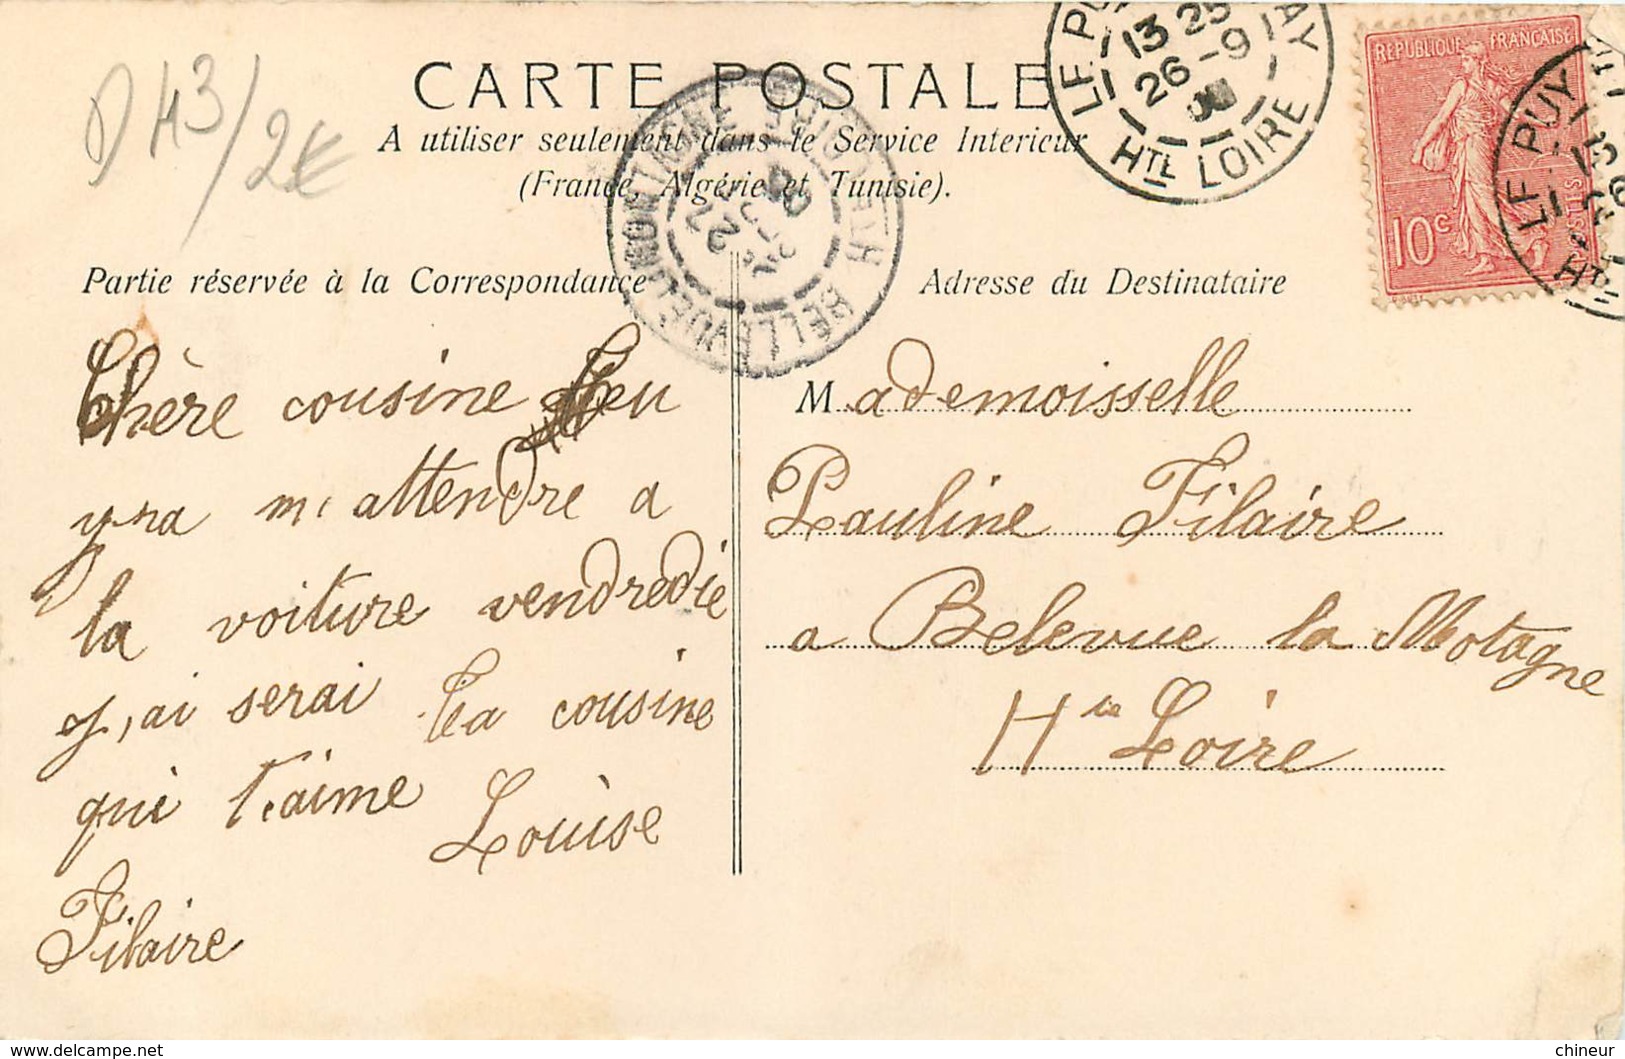 D 43/2€
CARTE POSTALE
A utiliser seulement dans le Service Interieur
(France, Algérie et Tunisie).
LE PUY
13 25
26 -9
HTE LOIRE
REPUBLIQUE FRANÇAISE
POSTES
10c
LE PUY
HTE
BELLEVUE-LA-MONTAGNE
27
Partie réservée à la Correspondance
Adresse du Destinataire
Chère cousine
yra m'attendre a
la voiture vendredie
j,ai serai ta cousine
qui t'aime Louise
Filaire
Mademoisselle
Pauline Filaire
a Belevue la Motagne
Hte Loire
chineur